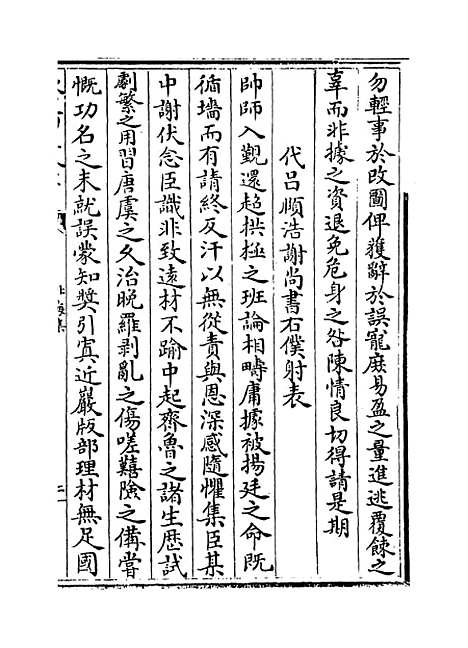 勿輕事於改圖俾獲辭於誤寵庶易盈之量進逃覆餗之
辜而非據之資退免危身之咎陳情良切得請是期
代呂頤浩謝尚書右僕射表
帥師入覲還趍拱極之班論相疇庸據被揚廷之命既
循墻而有請終反汗以無從責與恩深感隨懼集臣某
中謝伏念臣識非致逺材不踰中起齊魯之諸生歴試
劇繁之用習唐虞之久治晚羅剥亂之傷嗟囏險之備嘗
慨功名之未就誤蒙知奬引寘近嚴版部理材無足國
北海集